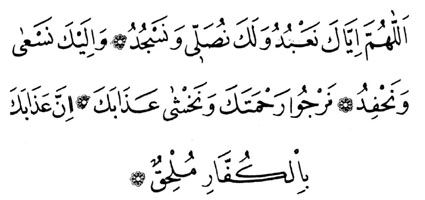 اَللّٰهُمَّ اِيَّاكَ نَعْبُدُ وَلَكَ نُصَلِّى وَنَسْجُدُ ۞ وَاِلَيْكَ نَسْعٰى
وَنَحْفِدُ ۞ نَرْجُوا رَحْمَتَكَ وَنَخْشٰى عَذَابَكَ ۞ اِنَّ عَذَابَكَ
بِالْكُفَّارِ مُلْحِقٌ ۞